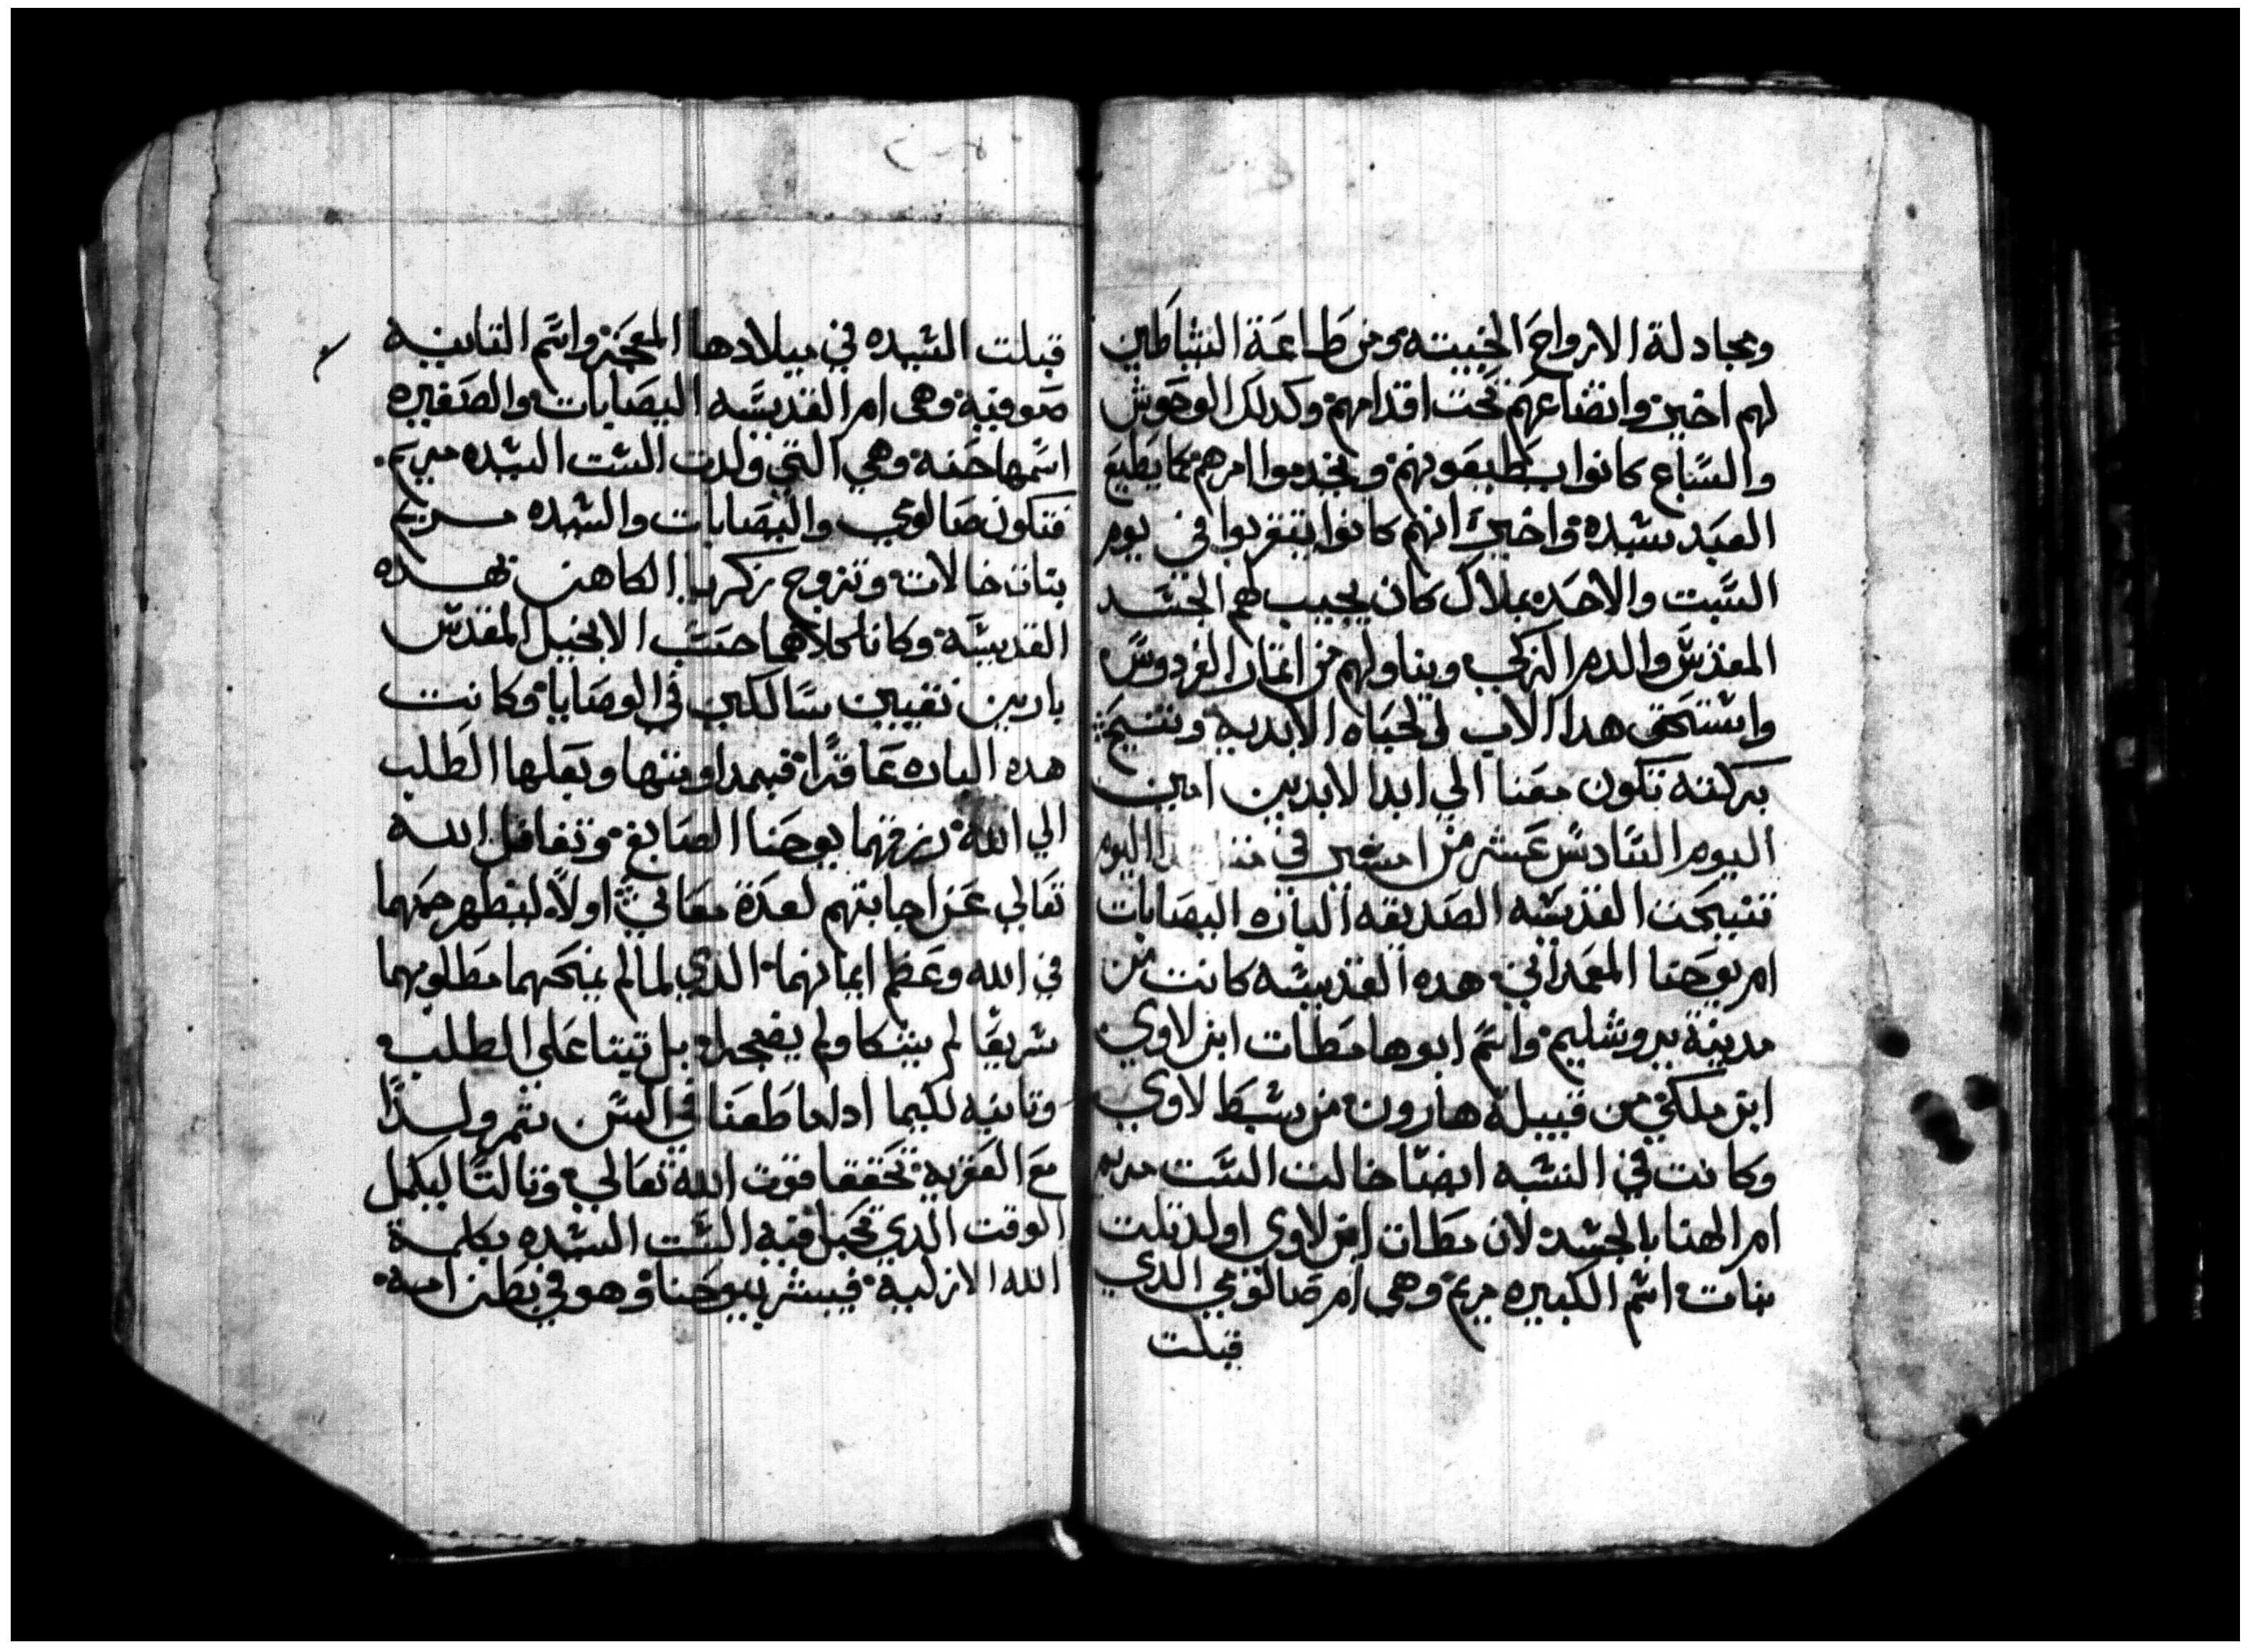 ومجادلة الارواح الخبيته ومن طاعة الشياطين
لهم اخيرً واتضاعهم تحت اقدامهم وكدلك الوحوش
والسباع كانوا يطيعونهم ويخدموا امرهم كما يطيع
العبد سيده واخيرً انهم كانوا يتقربوا في يوم
السبت والاحد بملاك كان يجيب لهم الجسد
المقدس والدم الزكي ويناولهم من اتمار الفردوس
واستحق هدا الاب الحياه الابديه وتنيح
بركته تكون معنا الي ابد الابدين امين
اليوم السادس عشر من امشير في هدا اليوم
تنيحت القديسه الصديقه الباره اليصابات
ام يوحنا المعمداني هده القديسه كانت من
مدينة يروشليم واسم ابوها مطات ابن لاوي
ابن ملكي من قبيلة هارون من سبط لاوي
وكانت في النسبه ايضا خالت الست مريم
ام الهنا بالجسد لان مطات ابن لاوي اولد تلت
بنات اسم الكبيره مريم وهي ام صالومي الدي
قبلت
قبلت السيده في ميلادها المعجز واسم التانيه
صوفيه وهي ام القديسه اليصابات والصغيره
اسمها حنه وهي التي ولدت الست السيده مريم
فتكون صالومي واليصابات والسيده مريم
بنات خالات وتزوج زكريا الكاهن بهده
القديسه وكانا كلاهما حسب الانجيل المقدس
بارين تقيين سالكين في الوصايا وكانت
هده الباره عاقرًا فبمداومتها وبعلها الطلب
الي الله رزقهما يوحنا الصابغ وتغافل الله
تعالي عن اجابتهم لعدة معاني اولاً ليظهر حبهما
في الله وعظم ايمانهما الدي لما لم يمنحهما مطلوبهما
سريعًا لم يشكا ولم يضجرا بل تبتا علي الطلب
وتانيه لكيما ادا ما طعنا في السن يتمر ولدًا
مع العقريه تحققا قوت الله تعالي وتالتًا ليكمل
الوقت الدي تحبل فيه الست السيده بكلمة
الله الازليه فيبشر بيوحنا وهو في بطن امه